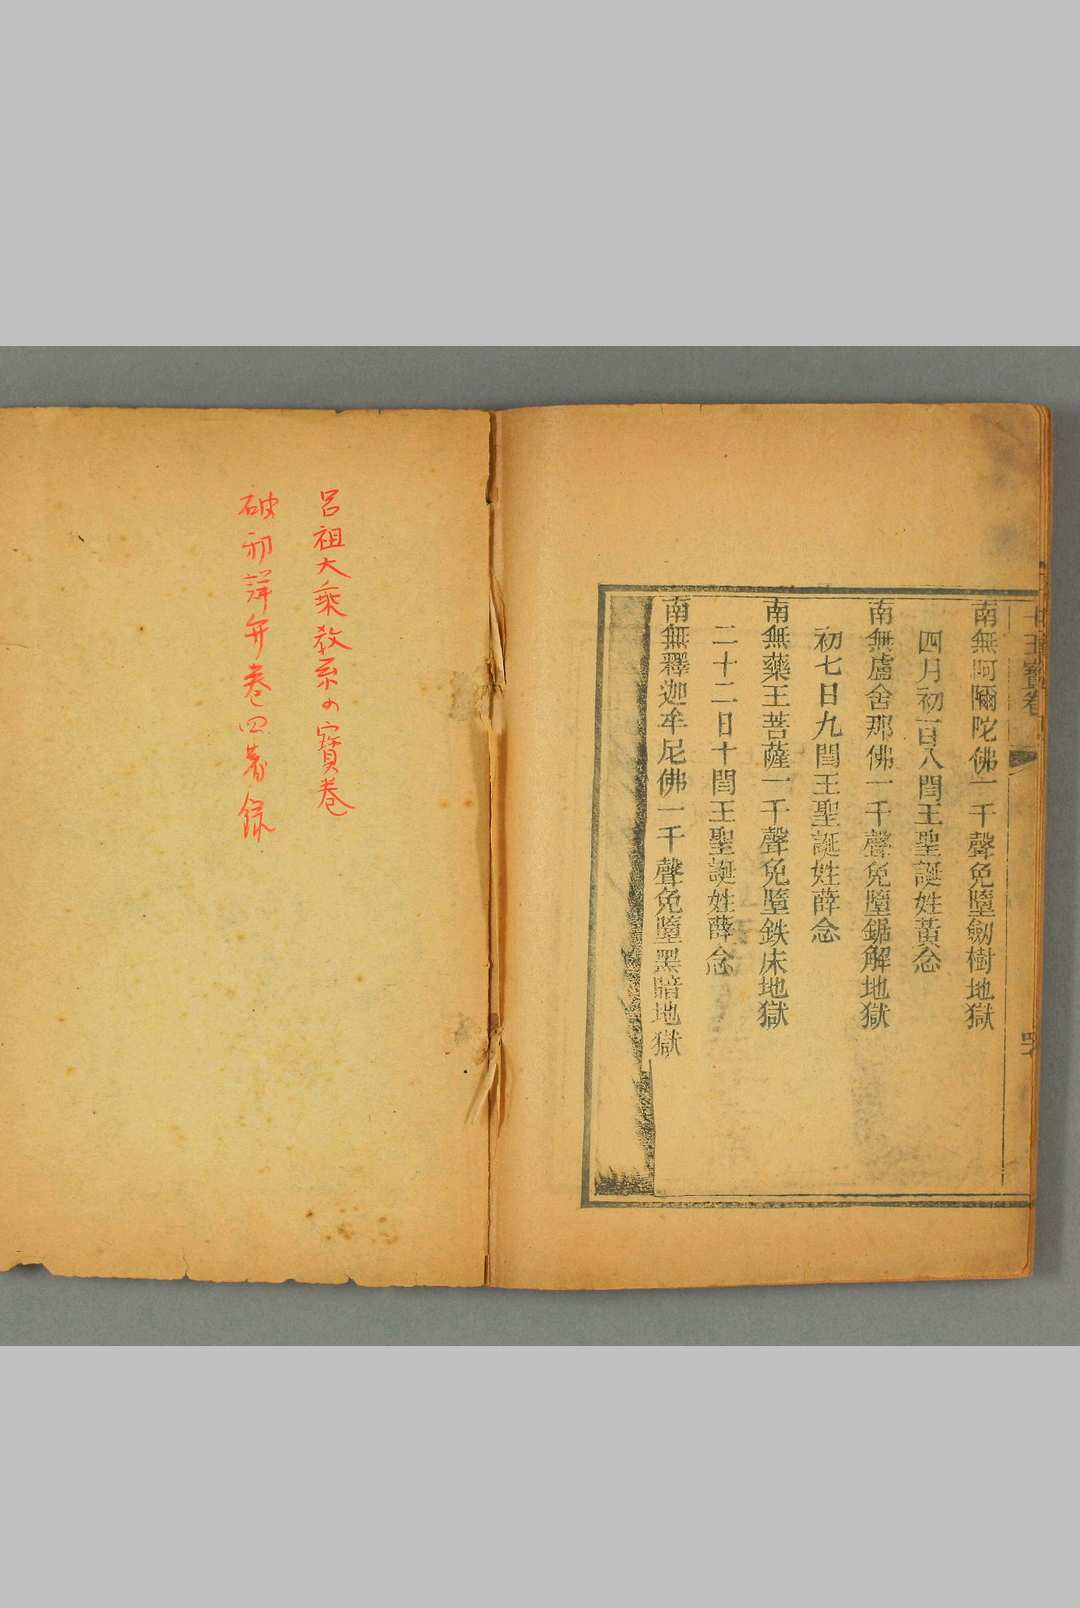 十王寳卷
南無阿彌陀佛一千聲免墮劔樹地獄
四月初一日八閻王聖誕姓黃念
南無盧舍那佛一千聲免墮鋸解地獄
初七日九閻王聖誕姓薛念
南無藥王菩薩一千聲免墮鉄床地獄
二十二日十閻王聖誕姓薛念
南無釋迦牟尼佛一千聲免墮黑暗地獄
呂祖大乗教系の寳巻
破邪詳弁巻四著録